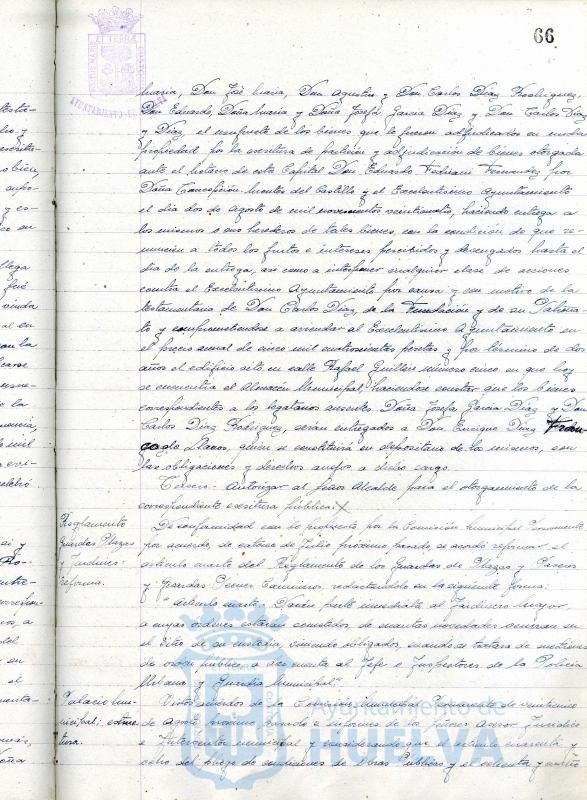 66
María, Don José María, Don Agustín y Don Carlos Díaz Rodríguez,
Don Eduardo, Doña María y Doña Josefa García Díaz y Don Carlos Díaz
y Díaz, el usufructo de los bienes que le fueron adjudicados en nuda
propiedad por la escritura de partición y adjudicación de bienes otorgada
ante el Notario de esta Capital Don Eduardo Fedriani Fernández por
Doña Concepción Montes del Castillo y el Excelentísimo Ayuntamiento
el día dos de Agosto de mil novecientos veinticuatro, haciendo entrega a
los mismos o sus herederos de tales bienes, con la condición de que re-
nuncien a todos los frutos e intereses percibidos y devengados hasta el
día de la entrega, así como a interponer cualquier clase de acciones
contra el Excelentísimo Ayuntamiento por causa y con motivo de la
testamentaría de Don Carlos Díaz, de la Fundación y de su Patrona-
to y comprometiéndose a arrendar al Excelentísimo Ayuntamiento en
el precio anual de cinco mil cuatrocientas pesetas y por término de dos
años el edificio sito en calle Rafael Guillén número cinco en que hoy
se encuentra el Almacén Municipal, haciéndose constar que los bienes
correspondientes a los legatarios ausentes Doña Josefa García Díaz y Don
Carlos Díaz Rodríguez, serán entregados a Don Enrique Díaz Fran-
co de Llanos, quien se constituirá en depositario de los mismos, con
las obligaciones y derechos anejos a dicho cargo.
Tercero.- Autorizar al Señor Alcalde para el otorgamiento de la
correspondiente escritura pública.
Reglamento
Guardas Plazas
y Jardines:
reforma.
De conformidad con lo propuesto por la Comisión Municipal Permanente
por acuerdo de catorce de Julio próximo pasado, se acordó reformar el
artículo cuarto del Reglamento de los Guardas de Plazas y Paseos
y Guardas Peones Camineros, redactándolo en la siguiente forma:
"Artículo cuarto. Darán parte inmediata al Jardinero Mayor,
a cuyas órdenes estarán sometidos de cuantas novedades ocurran en
el sitio de su custodia viniendo obligados, cuando se tratara de cuestiones
de orden público, a dar cuenta al Jefe e Inspectores de la Policía
Urbana y Guardia Municipal."
Palacio mu-
nicipal: estruc-
tura.
Vistos acuerdos de la Comisión Municipal Permanente de veinticinco
de Agosto próximo pasado e informes de los Señores Asesor Jurídico
e Interventor municipal y considerando que el artículo cuarenta y
ocho del pliego de condiciones de Obras Públicas y el ochenta y cuatro
Ayuntamiento de
HUELVA